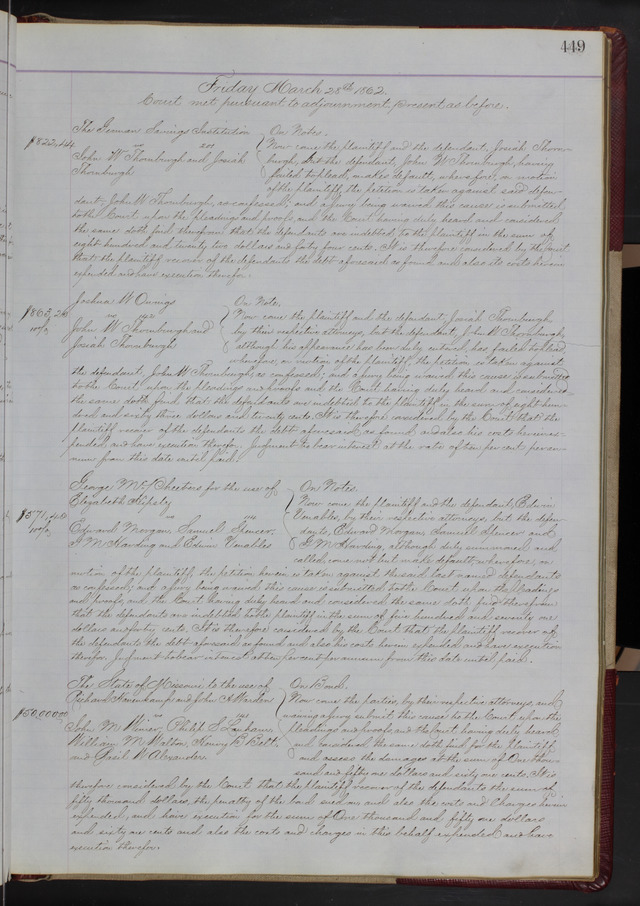 449
Friday March 28th 1862.
Court met pursuant to adjournment, present as before.
The German Savings Institution
vs
John W Thornburgh and Josiah
Thornburgh
$822.44
On Notes.
Now come the plaintiff and the defendant, Josiah Thorn-
burgh, but the defendant, John W Thornburgh, having
failed to plead, makes default, wherefore, on motion
of the plaintiff, the petition is taken against said defen-
dant, John W Thornburgh, as confessed; and a jury being waived this cause is submitted
to the Court upon the pleadings and proofs, and the Court having duly heard and considered
the same doth find therefrom that the defendants are indebted to the plaintiff in the sum of
eight hundred and twenty two dollars and forty four cents. It is therefore considered by the Court
that the plaintiff recover of the defendants the debt aforesaid as found and also its costs herein
expended and have execution therefor.
Joshua W Owings
vs
John W Thornburgh and
Josiah Thornburgh
$863.20
10%
On Note.
Now come the plaintiff and the defendant, Josiah Thornburgh
by their respective attorneys, but the defendant, John W Thornburgh,
although his appearance has been duly entered, has failed to plead
wherefore, on motion of the plaintiff, the petition is taken against
the defendant, John W Thornburgh, as confessed; and a jury being waived this cause is submitted
to the Court upon the pleadings and proofs and the Court having duly heard and considered
the same doth find that the defendants are indebted to the plaintiff in the sum of eight hun-
dred and sixty three dollars and twenty cents. It is therefore considered by the Court that the
plaintiff recover of the defendants the debt aforesaid as found and also his costs herein ex-
pended, and have execution therefor. Judgment to bear interest at the rate of ten per cent per an-
num from this date until paid.
George M Cheevers for the use of
Elizabeth Hipsley
vs
Edward Morgan, Samuel Spencer,
G M Harding and Edwin Venables
$571.40
10%
On Notes.
Now come the plaintiff and the defendant, Edwin
Venables, by their respective attorneys, but the defen-
dants, Edward Morgan, Samuel Spencer and
G M Harding, although duly summoned and
called, come not but make default, wherefore, on
motion of the plaintiff, the petition herein is taken against the said last named defendants
as confessed; and a jury being waived this cause is submitted to the Court upon the pleadings
and proofs, and the Court having duly heard and considered the same doth find therefrom
that the defendants are indebted to the plaintiff in the sum of five hundred and seventy one
dollars and forty cents. It is therefore considered by the Court that the plaintiff recover of
the defendants the debt aforesaid as found and also his costs herein expended and have execution
therefor. Judgment to bear interest at ten per cent per annum from this date until paid.
The State of Missouri to the use of
Richard and John S Warden
vs
John M Wimer, Philip S Lanham,
William M Walton, Henry B Belt,
and Basil W Alexander
$50,000.00
On Bond.
Now come the parties, by their respective attorneys, and
waiving a jury submit this cause to the Court upon the
pleadings and proofs and the Court having duly heard
and considered the same doth find for the plaintiff
and assess the damages at the sum of One thou-
sand and fifty one dollars and sixty one cents. It is
therefore considered by the Court that the plaintiff recover of the defendants the sum of
fifty thousand dollars, the penalty of the bond sued on, and also the costs and charges herein
expended, and have execution for the sum of One thousand and fifty one dollars
and sixty one cents and also the costs and charges in this behalf expended and have
execution therefor.